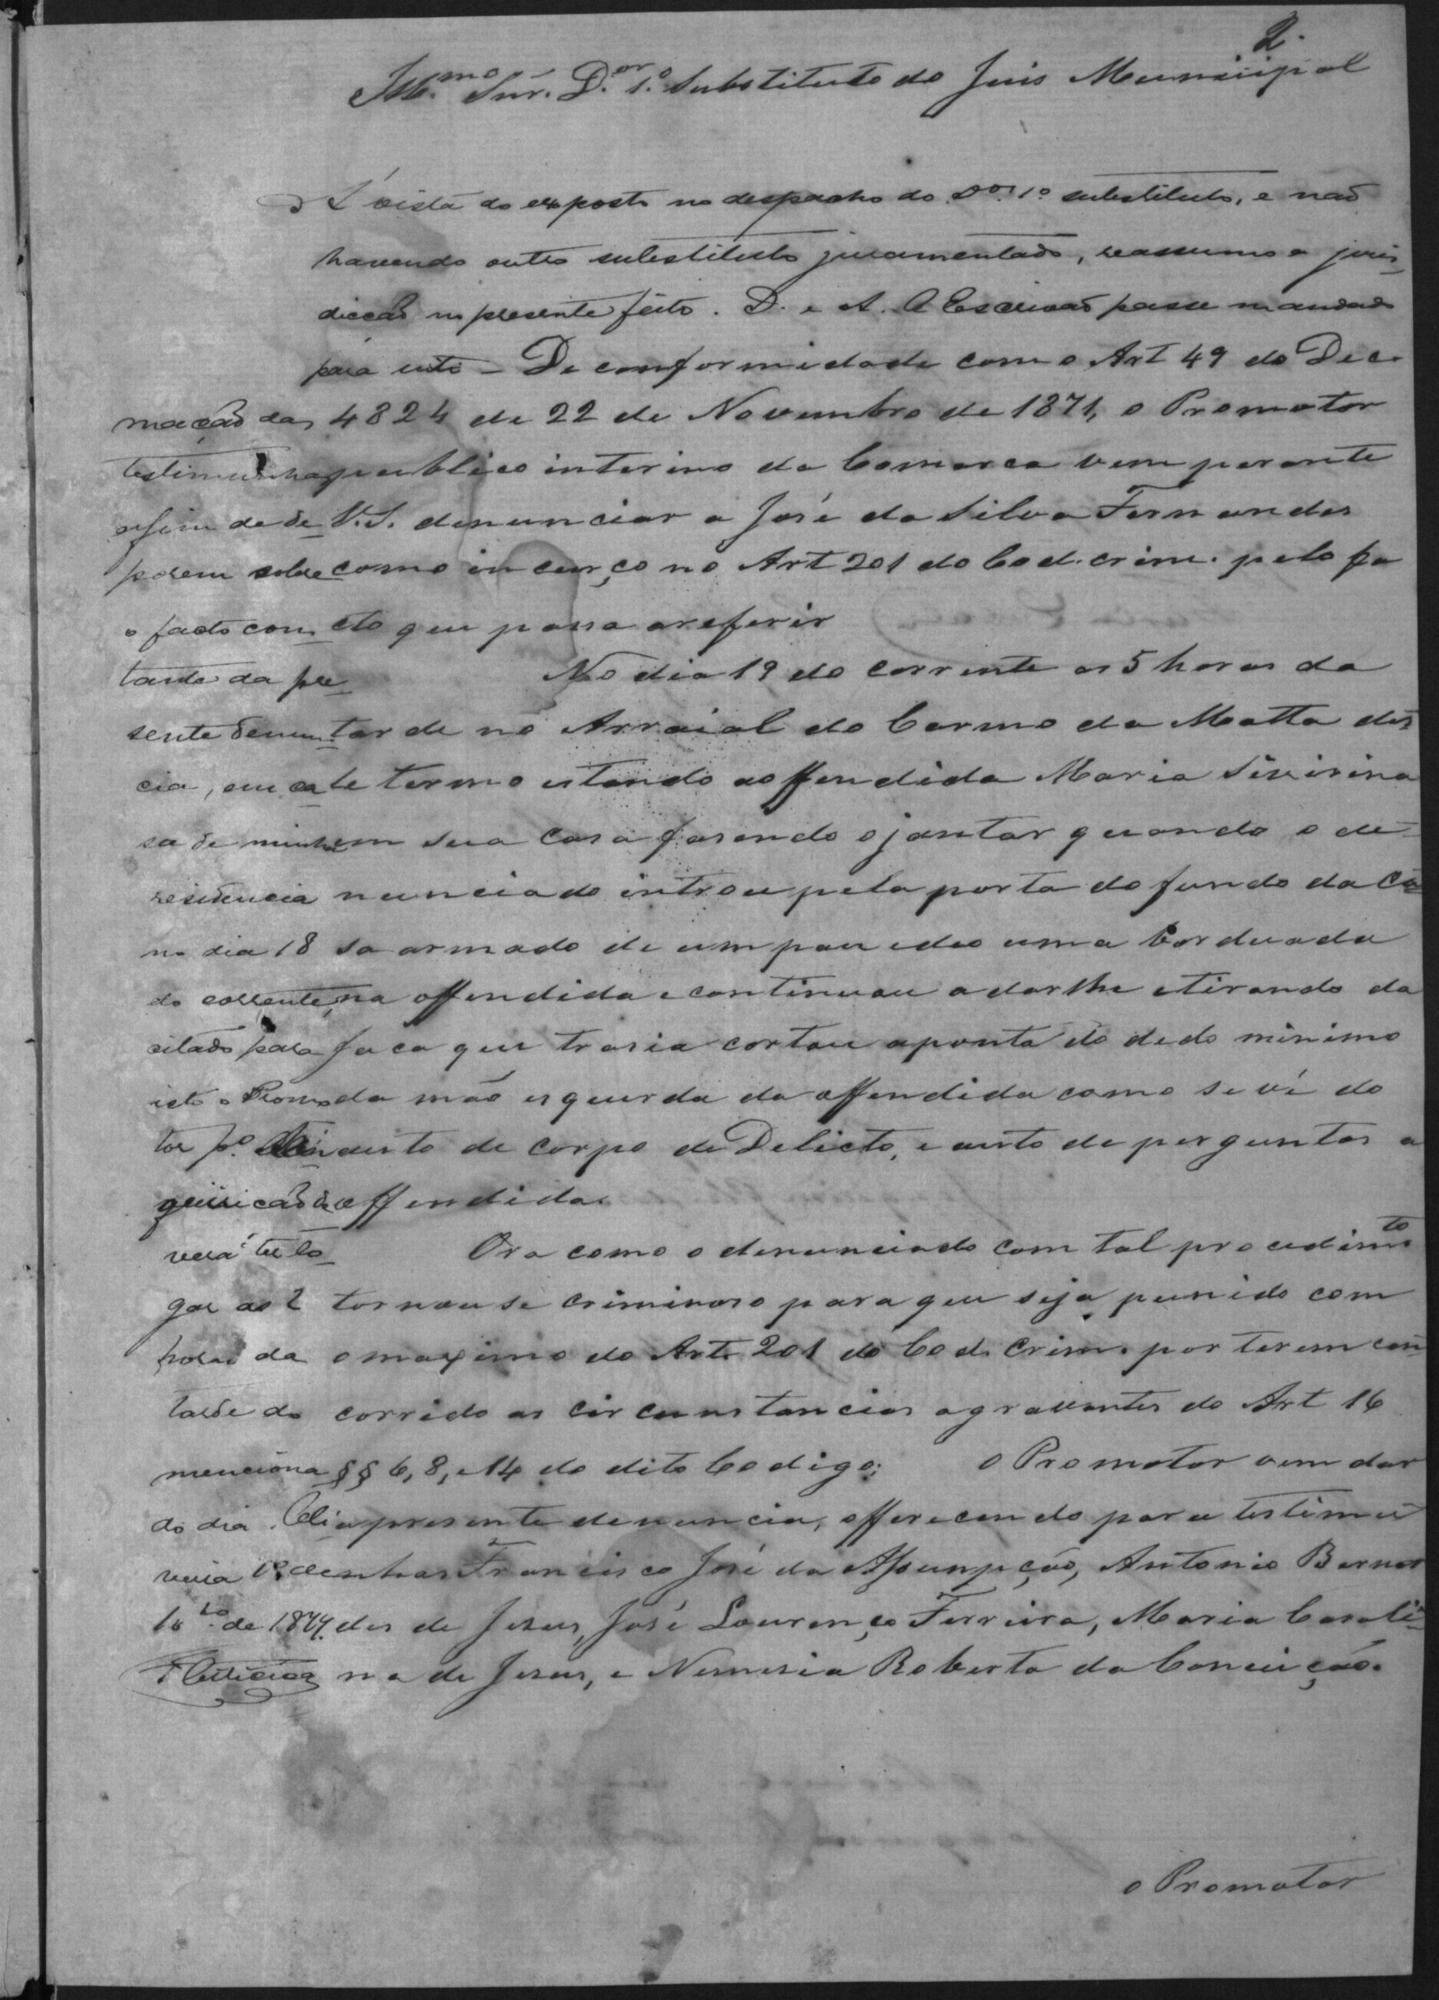 2.
Ill.mo Snr. D.or 1.o Substituto do Juis Municipal
Á vista do exposto no despacho do D.or 1.o substituto, e não
havendo outro substituto juramentado, reassumo a juris-
dicção no presente feito. D. e A. O Escrivão passe mandado
para inti- De conformidade com o Art 49 do Dec.
mação das 4824 de 22 de Novembro de 1871, o Promotor
testimunhas publico interino da Comarca vem perante
afim de de- V.S. denunciar a José da Silva Fernandes
porem sobre como incurço no Art 201 do Cod. crim. pelo fa
o facto cons- cto que passa a referir
tante da pre- No dia 19 do corrente as 5 horas da
sente denun- tarde no Arraial do Carmo da Matta des-
cia, em ca- te termo estando a offendida Maria Siverina
sa de minha em sua casa fasendo o jantar quando o de-
residencia nunciado introu pela porta do fundo da ca-
no dia 18 sa armado de um pau e deo uma borduada
do corrente, na offendida e continuou a darlhe e tirando da
citado para faca que trasia cortou a ponta do dedo minimo
isto o Promo- da mão esquerda da offendida como se vê do
tor p.o auto de corpo de Delicto, e auto de perguntas a
quirição de offendida.
verá ter lo- Ora como o denunciado com tal procedim.to
gar as 2 tornou se criminoso para que seja punido com
horas da o maximo do Art. 201 do Cod. Crim. por terem con-
tarde do corrido as circunstancias agravantes do Art 16
menciona §§ 6, 8, e 14 do dito Codigo; o Promotor vem dar
do dia. a presente denuncia, offerecendo para testimu-
nhas Francisco José da Assumpção, Antonio Bernar
de 1874. des de Jesus, José Lourenço Ferreira, Maria Caroli-
na de Jesus, e Nemesia Roberta da Conceição.
o Promotor